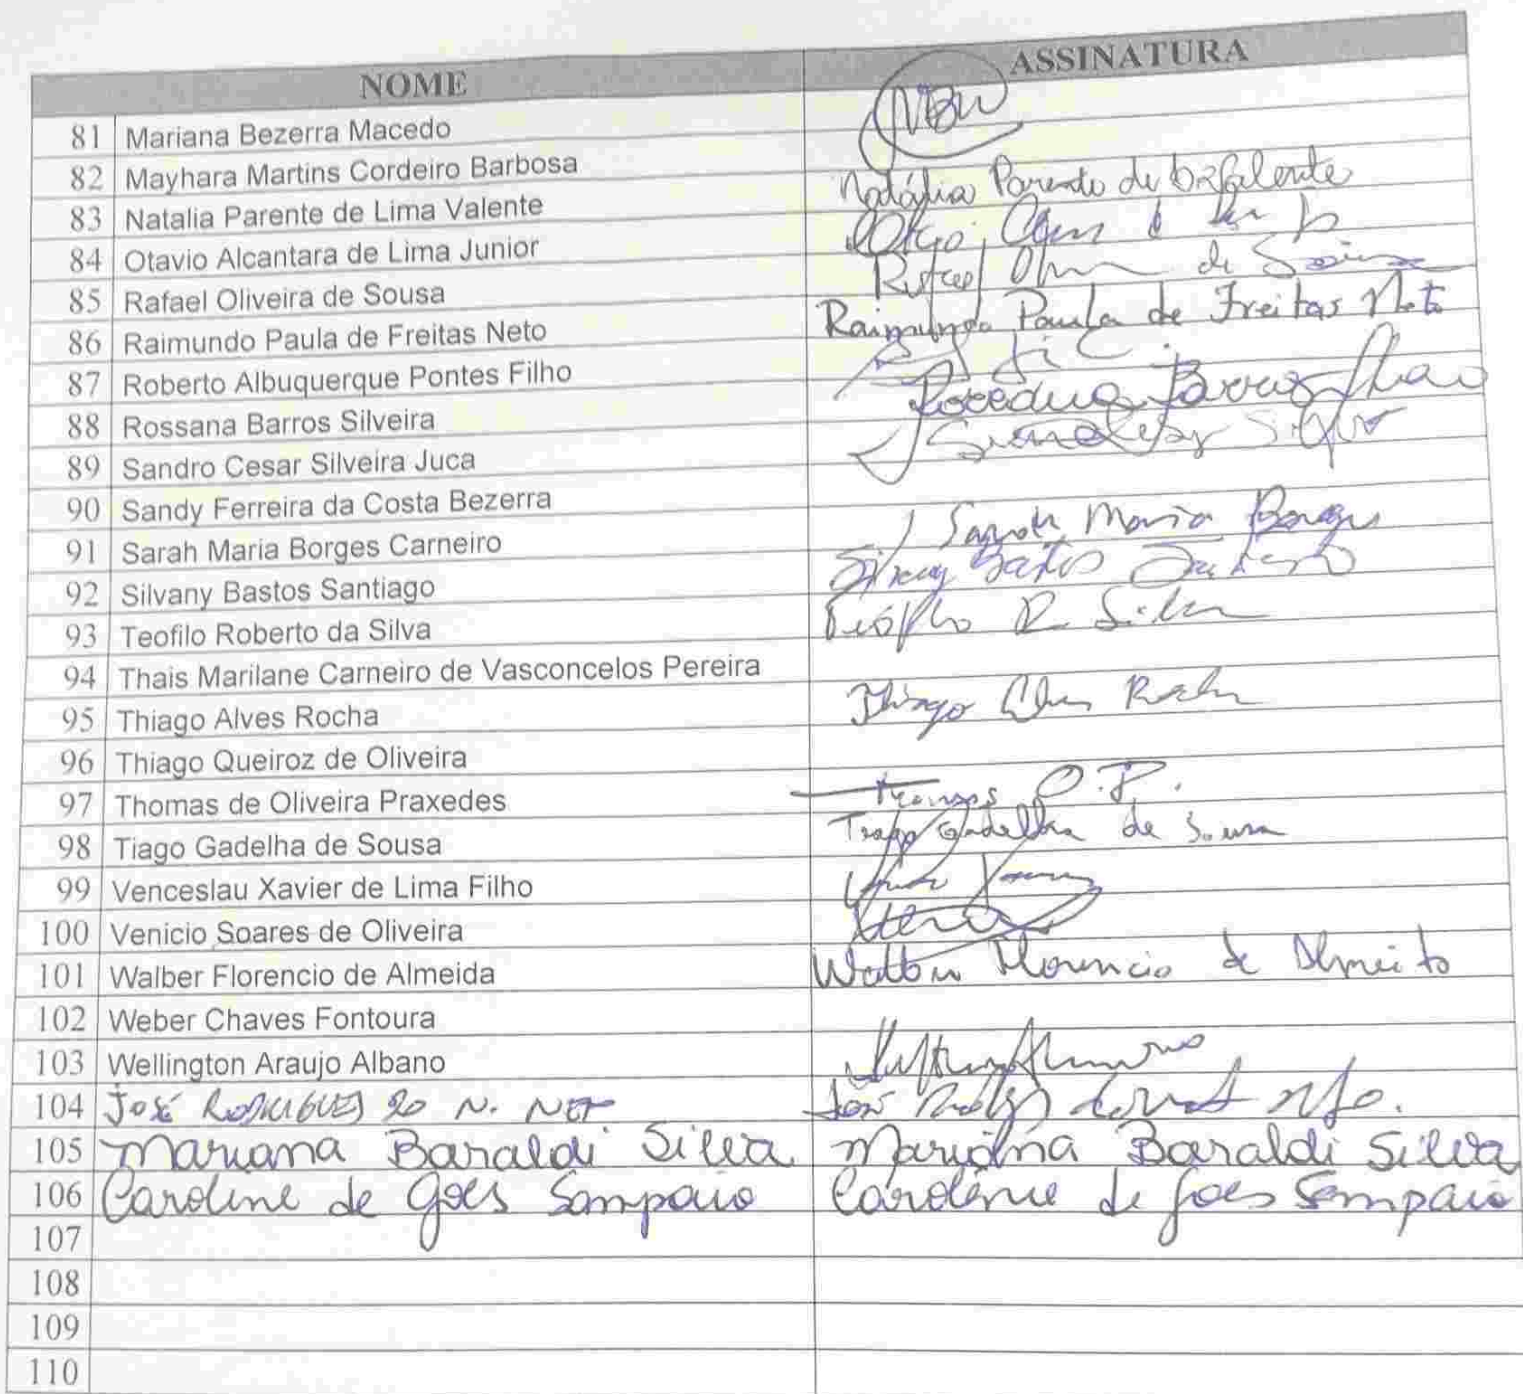 NOME ASSINATURA
81 Mariana Bezerra Macedo
82 Mayhara Martins Cordeiro Barbosa
83 Natalia Parente de Lima Valente Natália Parente de
84 Otavio Alcantara de Lima Junior
85 Rafael Oliveira de Sousa Rafael de
86 Raimundo Paula de Freitas Neto Raimundo Paula de Freitas Neto
87 Roberto Albuquerque Pontes Filho
88 Rossana Barros Silveira
89 Sandro Cesar Silveira Juca
90 Sandy Ferreira da Costa Bezerra
91 Sarah Maria Borges Carneiro Sarah Maria Borges
92 Silvany Bastos Santiago Bastos
93 Teofilo Roberto da Silva Teófilo R Silva
94 Thais Marilane Carneiro de Vasconcelos Pereira
95 Thiago Alves Rocha Thiago Alves Rocha
96 Thiago Queiroz de Oliveira
97 Thomas de Oliveira Praxedes O.P.
98 Tiago Gadelha de Sousa Tiago Gadelha de Sousa
99 Venceslau Xavier de Lima Filho
100 Venicio Soares de Oliveira
101 Walber Florencio de Almeida Walber Florencio de Almeida
102 Weber Chaves Fontoura
103 Wellington Araujo Albano
104 José RODRIGUES N.
105 Mariana Baraldi Silva Mariana Baraldi Silva
106 Caroline de Goes Sampaio Caroline de Goes Sampaio
107
108
109
110